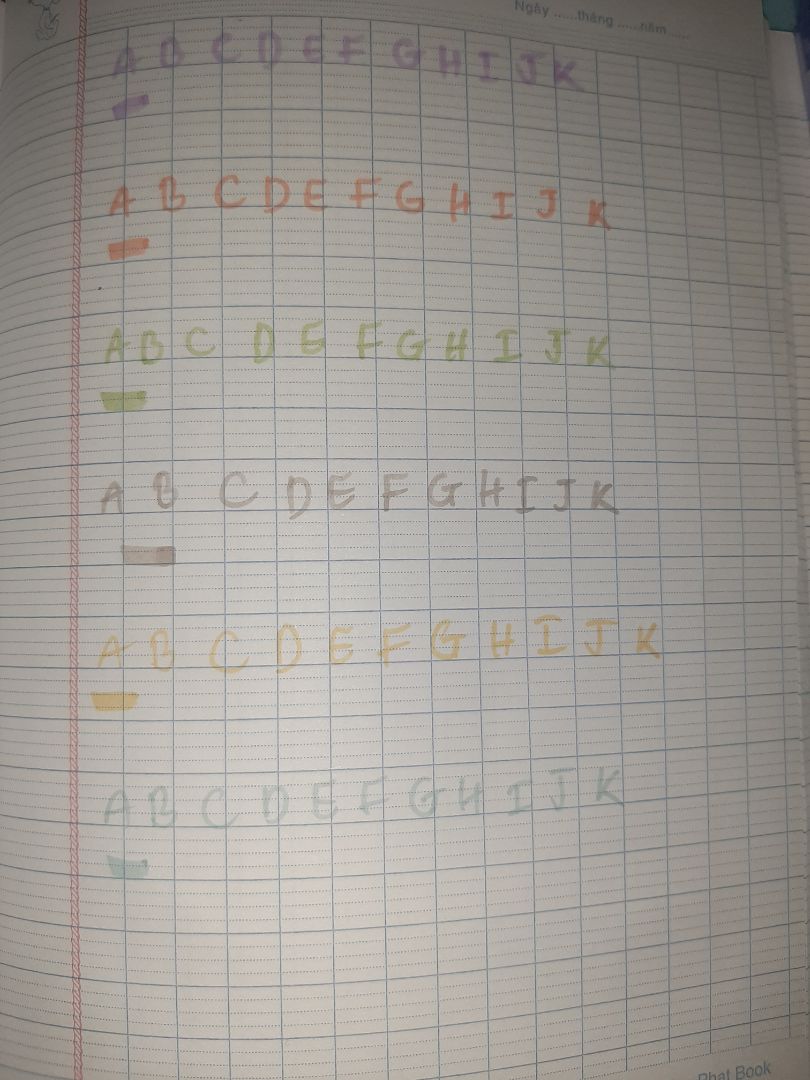 Ngày ......tháng ......năm .....
A B C D E F G H I J K
A B C D E F G H I J K
A B C D E F G H I J K
A B C D E F G H I J K
A B C D E F G H I J K
A B C D E F G H I J K
Phat Book